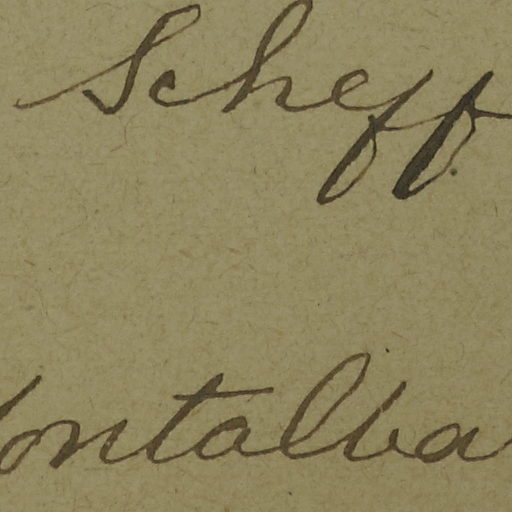 Scheff
ontalba